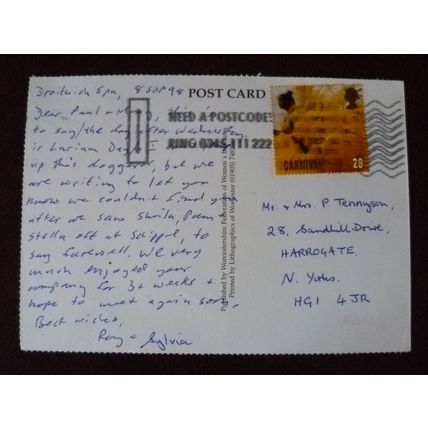 Droitwich Spa, 8 Sep 98
Dear Paul +
to say/the day after Wednesday
is Lariam Day!
up this doggerel, but we
are writing to let you
know we couldn't find you
after we saw Sheila, Pam
Stella off at Schippol, to
say farewell. We very
much enjoyed your
company for 3+ weeks +
hope to meet again soon.
Best wishes,
Ray +
Sylvia
POST CARD
NEED A POSTCODE?
RING 0345 111 222
Published by Worcestershire Federation of Women's
Printed by Lithographics of Worcester (01905)
CARNIVAL 20
Mr. & Mrs. P Tennyson,
28, Sandhill Drive,
HARROGATE,
N. Yorks.
HG1 4JR